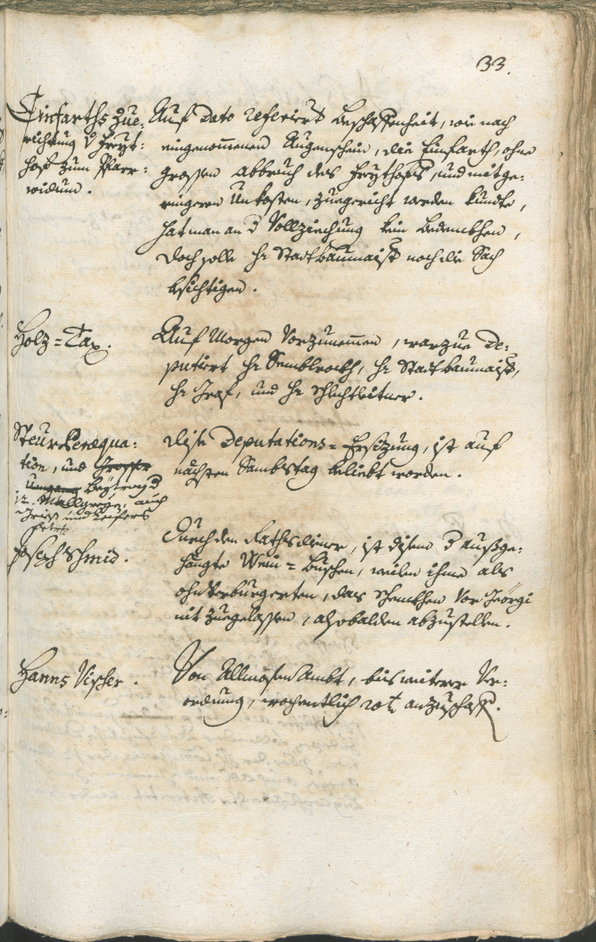 33.
Einfarths Zue-
richtung v Freyt-
hoff zum Pfarr-
widum.
Auf dato referiert Beschaffenheit, wie nach
eingenommenen Augenschein, die Einfarth, ohne
grossen Abbruch des Freythoffs, und mit ge-
ringeren Unkosten, zuegericht werden kundte,
hat man an d Vollziehung kein Bedenckhen,
doch solle Hr Stadtbaumaistr noch die Sach
besichtigen.
Holz=Tax.
Auf Morgen Vorzunemmen, warzue De-
putiert Hr Semblrockh, Hr Stadtbaumaistr,
Hr Graf, und Hr Schlichtleitner.
Steur Peraequa-
tion, und
Beytreg
auch
und
Dise Deputations=Ersizung, ist auf
nächsten Sambstag beliebt worden.
Joseph Schmid.
Durch den Rathsdiener, ist disem d außge-
hängte Wein=Buschen, weiln ihme als
ohnverburgerten, das Schenckhen Vor Georgi
nit zuegelassen, alsobalden abzustellen.
Hanns Vischer.
Von Allmosen Ambt, bis weitere Ver-
ordnung, wochentlich 20 anzuschaff.